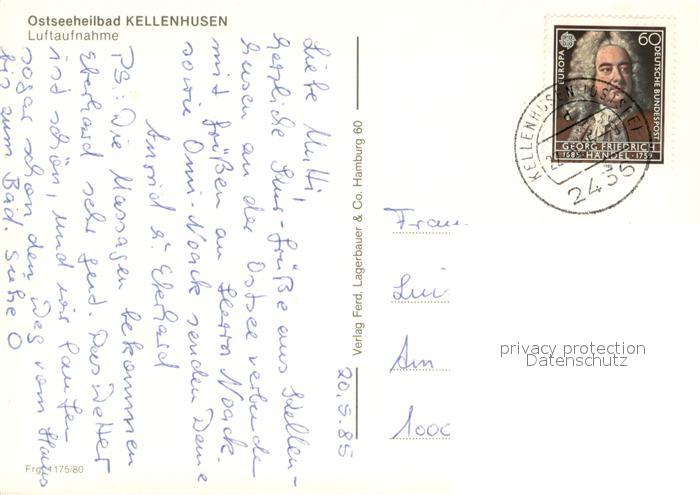 Ostseeheilbad KELLENHUSEN
Luftaufnahme
Liebe Mutti!
herzliche Kur-Grüße aus Kellen-
husen an der Ostsee verbunden
mit Grüßen an Herrn Noack
sowie Omi-Noack senden Deine
u. Eberhard
PS.: Die Massagen bekommen
Eberhard sehr gut. Das Wetter
ist schön, und wir laufen
sogar schon den Weg vom Haus
bis zum Bad. Siehe O
20.5.85
Verlag Ferd. Lagerbauer & Co. Hamburg 60
Frg. 1175/80
EUROPA
60
DEUTSCHE BUNDESPOST
GEORG FRIEDRICH
1685 HÄNDEL 1759
KELLENHUSEN, OSTSEE
2436
Frau
Am
1000
privacy protection
Datenschutz